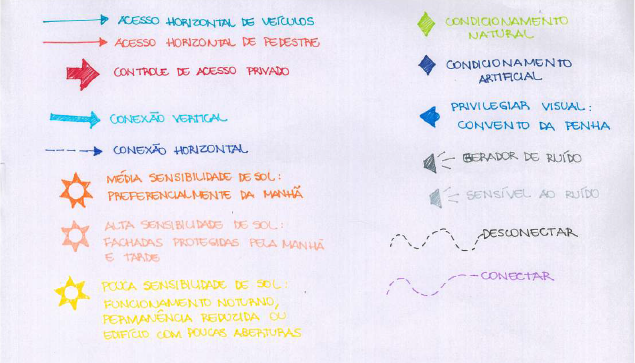 ACESSO HORIZONTAL DE VEÍCULOS
ACESSO HORIZONTAL DE PEDESTRE
CONTROLE DE ACESSO PRIVADO
CONEXÃO VERTICAL
CONEXÃO HORIZONTAL
MÉDIA SENSIBILIDADE DE SOL:
PREFERENCIALMENTE DA MANHÃ
ALTA SENSIBILIDADE DE SOL:
FACHADAS PROTEGIDAS PELA MANHÃ
E TARDE
POUCA SENSIBILIDADE DE SOL:
FUNCIONAMENTO NOTURNO,
PERMANÊNCIA REDUZIDA OU
EDIFÍCIO COM POUCAS ABERTURAS
CONDICIONAMENTO
NATURAL
CONDICIONAMENTO
ARTIFICIAL
PRIVILEGIAR VISUAL:
CONVENTO DA PENHA
GERADOR DE RUÍDO
SENSÍVEL AO RUÍDO
DESCONECTAR
CONECTAR